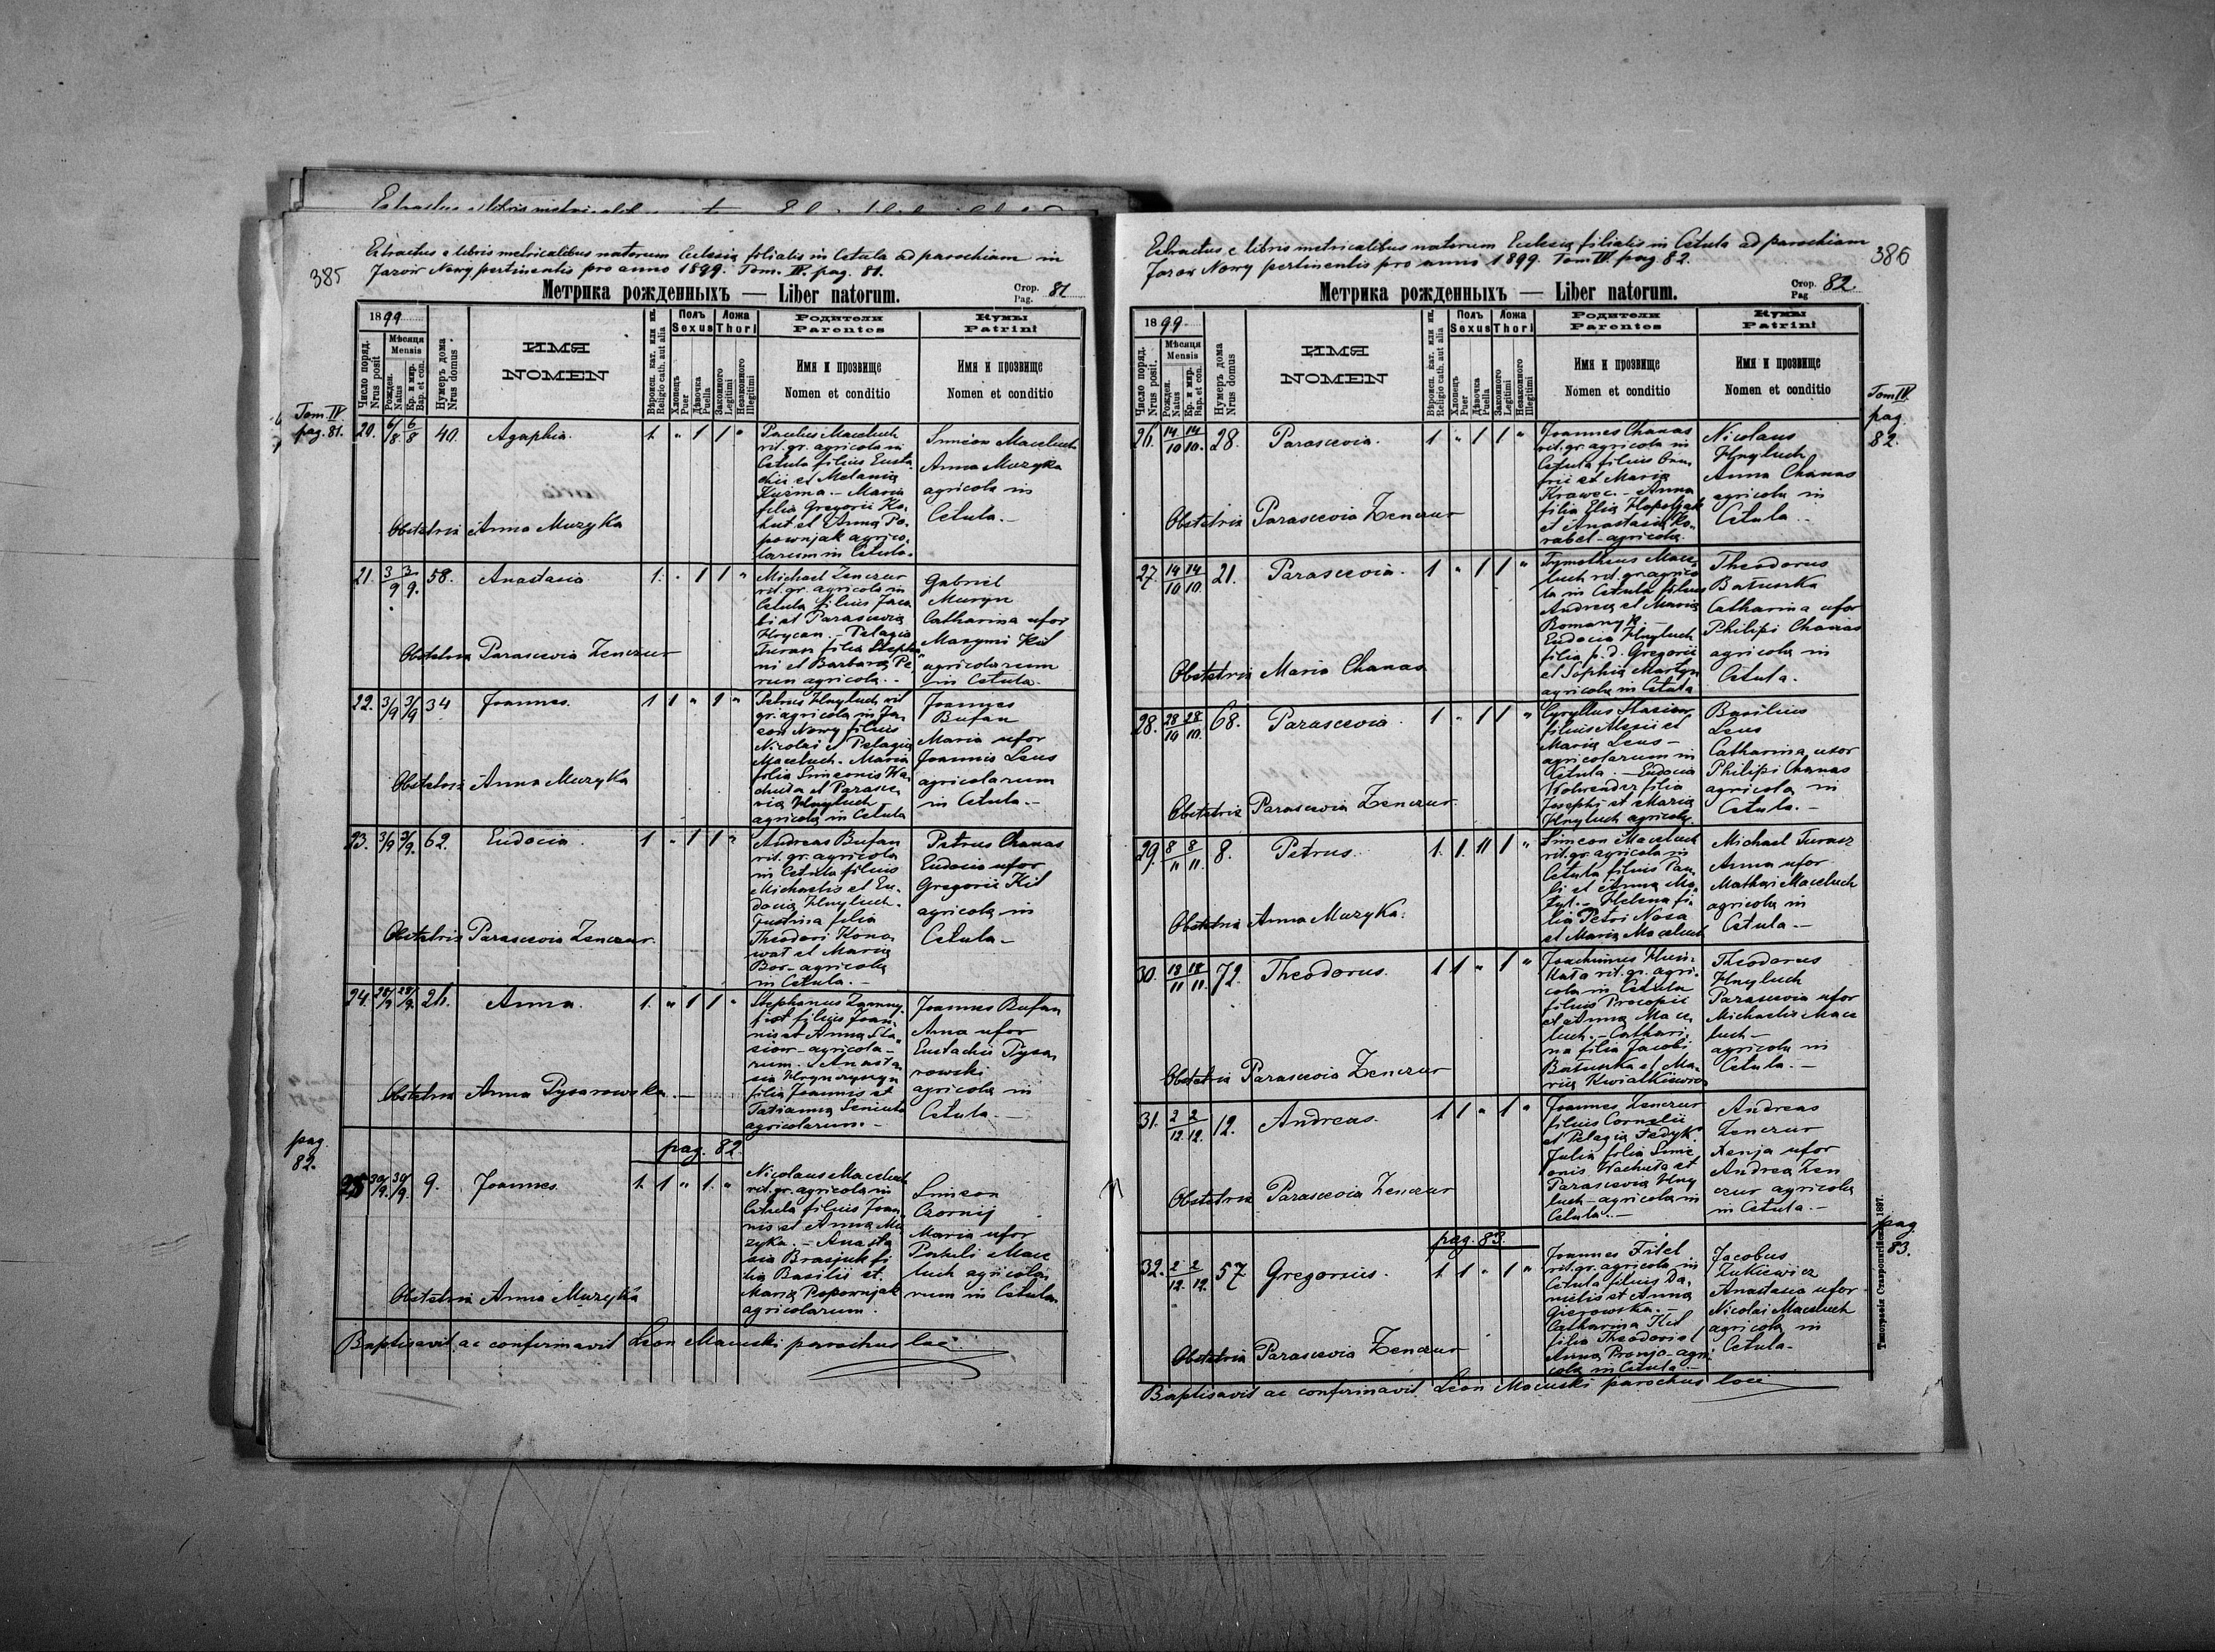 Extractus e libris metricalibus natorum Ecclesiæ filialis in Cetula ad parochiam in
385
Jazow Nowy pertinentis pro anno 1899. Tom. IV. pag. 81.
Метрика рожденныхъ — Liber natorum.
Стор. Pag. 81
1899
Число поряд. Nrus posit
Мѣсяця Mensis
Рожден. Natus
Кр. и мир. Bap. et con.
Нумеръ дома Nrus domus
ИМЯ
NOMEN
Вѣроисп. кат. или ин. Religio cath. aut alia
Полъ Sexus
Хлопецъ Puer
Дѣвочка Puella
Ложа Thori
Законного Legitimi
Незаконного Illegitimi
Родители
Parentes
Имя и прозвище
Nomen et conditio
Кумы
Patrini
Имя и прозвище
Nomen et conditio
Tom IV
pag. 81.
20. 6/8 6/8 40. Agaphia. 1. " 1 1 "
Paulus Maceluch
rit. gr. agricola in
Cetula filius Eusta
chii et Melania
Kuźma. - Maria
filia Gregorii Ko,
hut et Anna Po,
pownjak agrico,
larum in Cetula.
Simeon Maceluch
Anna Muzyka
agricolæ in
Cetula. -
Obstetrix Anna Muzyka
21. 3/9 3/9. 58. Anastasia 1. " 1 1 "
Michael Zenczur
rit. gr. agricola in
Cetula filius Jaco
bi et Parascevia
Hrycan. - Pelagia
Turasz filia Stepha
ni et Barbara Pe
run agricolæ. -
Gabriel
Muryn
Catharina uxor
Maxymi Kil
agricolarum
in Cetula.
Obstetrix Parascevia Zenczur
22. 3/9 3/9 34 Joannes. 1 1 " 1 "
Petrus Hnyluch rit
gr. agricola in Ja,
zow Nowy filius
Nicolai et Pelagia
Maceluch. Maria
filia Simeonis Wa
chuta et Parasce
via Hnyluch
agricolæ in Cetula
Joannes
Bufan
Maria uxor
Joannis Leus
agricolarum
in Cetula. -
Obstetrix Anna Muzyka
23. 3/9 3/9. 62. Eudocia. 1 " 1 1 "
Andreas Bufan
rit. gr. agricola
in Cetula filius
Michaelis et Eu,
docia Hnyluch.
Justina filia
Theodori Kono,
wał et Maria
Bos - agricolæ
in Cetula. -
Petrus Chanas
Eudocia uxor
Gregorii Kil
agricolæ in
Cetula -
Obstetrix Parascevia Zenczur.
24. 28/9 28/9. 26. Anna. 1. " 1 1 "
filius Joan,
nis et Anna Sta,
siow - agricola -
rum. - Anasta,
sia Hrynczyszyn
filia Joannis et
Tatianna Seniuta
agricolarum. -
Joannes Bufan
Anna uxor
Eustachii Pysa,
rowski
agricolæ in
Cetula. -
Obstetrix Anna Pysarowska. -
pag.
82.
pag. 82
25 30/9. 30/9. 9. Joannes. 1. 1 " 1. "
Nicolaus Maceluch
rit. gr. agricola in
Cetula filius Joan,
nis et Anna Mu
zyka. - Anasta
sia Brasjuk fi
lia Basilii et
Maria Popownjak
agricolarum.
Simeon
Czornij
Maria uxor
Pauli Mace
luch agricola,
rum in Cetula.
Obstetrix Anna Muzyka
Baptisavit ac confirmavit Leon Macucki parochus loci.
Extractus e libris metricalibus natorum Ecclesiæ filialis in Cetula ad parochiam
386
Jazow Nowy pertinentis pro anno 1899. Tom IV. pag 82.
Метрика рожденныхъ — Liber natorum.
Стор. Pag 82.
1899
Число поряд. Nrus posit.
Мѣсяця Mensis
Рожден. Natus
Кр. и мир. Bap. et con.
Нумеръ дома Nrus domus
ИМЯ
NOMEN
Вѣроисп. кат. или ин. Religio cath. aut alia
Полъ Sexus
Хлопецъ Puer
Дѣвочка Puella
Ложа Thori
Законного Legitimi
Незаконного Illegitimi
Родители
Parentes
Имя и прозвище
Nomen et conditio
Кумы
Patrini
Имя и прозвище
Nomen et conditio
Tom IV.
pag
82.
26. 14/10 14/10. 28. Parascevia. 1 " 1 1 "
Joannes Chanas
rit. gr. agricola in
Cetula filius Onu,
frii et Maria
Krawec. - Anna
filia Eliæ Hapoljak
et Anastasia Ko,
rabel - agricolæ.
Nicolaus
Hnyluch
Anna Chanas
agricolæ in
Cetula. -
Obstetrix Parascevia Zenczur
27. 14/10 14/10. 21. Parascevia. 1 " 1 1 "
Tymotheus Mace,
luch rit. gr. agrico
la in Cetula filius
Andreæ et Maria
Romanyk. -
Eudocia Hnyluch
filia p. d. Gregorii
et Sophia Martyn
agricolæ in Cetula
Theodorus
Batiuszka
Catharina uxor
Philipi Chanas
agricolæ in
Cetula.
Obstetrix Maria Chanas
28. 28/10 28/10. 68. Parascevia. 1 " 1 1 "
Cyryllus Stasiow
filius Alexii et
Maria Leus -
agricolarum in
Cetula. - Eudocia
filia
Josephi et Maria
Hnyluch agricolæ.
Basilius
Leus
Catharina uxor
Philipi Chanas
agricolæ in
Cetula. -
Obstetrix Parascevia Zenczur.
29. 8/11 8/11. 8. Petrus. 1. 1. 11 1 "
Simeon Maceluch
rit. gr. agricola in
Cetula filius Pau
li et Anna Mo,
tyl. - Helena fi
lia Petri Nosa
et Maria Maceluch
Michael Turasz
Anna uxor
Mathæi Maceluch
agricolæ in
Cetula. -
Obstetrix Anna Muzyka.
30. 18/11 18/11. 72. Theodorus. 1 1 " 1 "
Joachimus
rit. gr. agri,
cola in Cetula
filius Procopii
et Anna Mace
luch. - Cathari,
na filia Jacobi
Batiuszka et Ma,
ria Kwiatkiewicz
Theodorus
Hnyluch
Parascevia uxor
Michaelis Mace
luch -
agricolæ in
Cetula. -
Obstetrix Parascevia Zenczur
31. 2/12. 2/12. 12. Andreas. 1 1 " 1 "
Joannes Zenczur
filius Cornelii
et Pelagia Fedyk.
Julia filia Sime
onis Wachuta et
Parascevia Hny
luch - agricolæ in
Cetula. -
Andreas
Zenczur
Xenja uxor
Andreæ Zen
czur agricolæ
in Cetula. -
Obstetrix Parascevia Zenczur
pag. 83.
pag
83.
32. 2/12. 2/12. 57 Gregorius. 1. 1 " 1 "
Joannes Fitel
rit. gr. agricola in
Cetula filius Da,
nielis et Anna
Gierowska. -
Catharina Kil
filia Theodori et
Anna Pronjo - agri
colæ in Cetula -
Jacobus
Żukiewicz
Anastasia uxor
Nicolai Maceluch
agricolæ in
Cetula -
Obstetrix Parascevia Zenczur
Baptisavit ac confirmavit Leon Macucki parochus loci
Типографія Ставропигійска 1897.